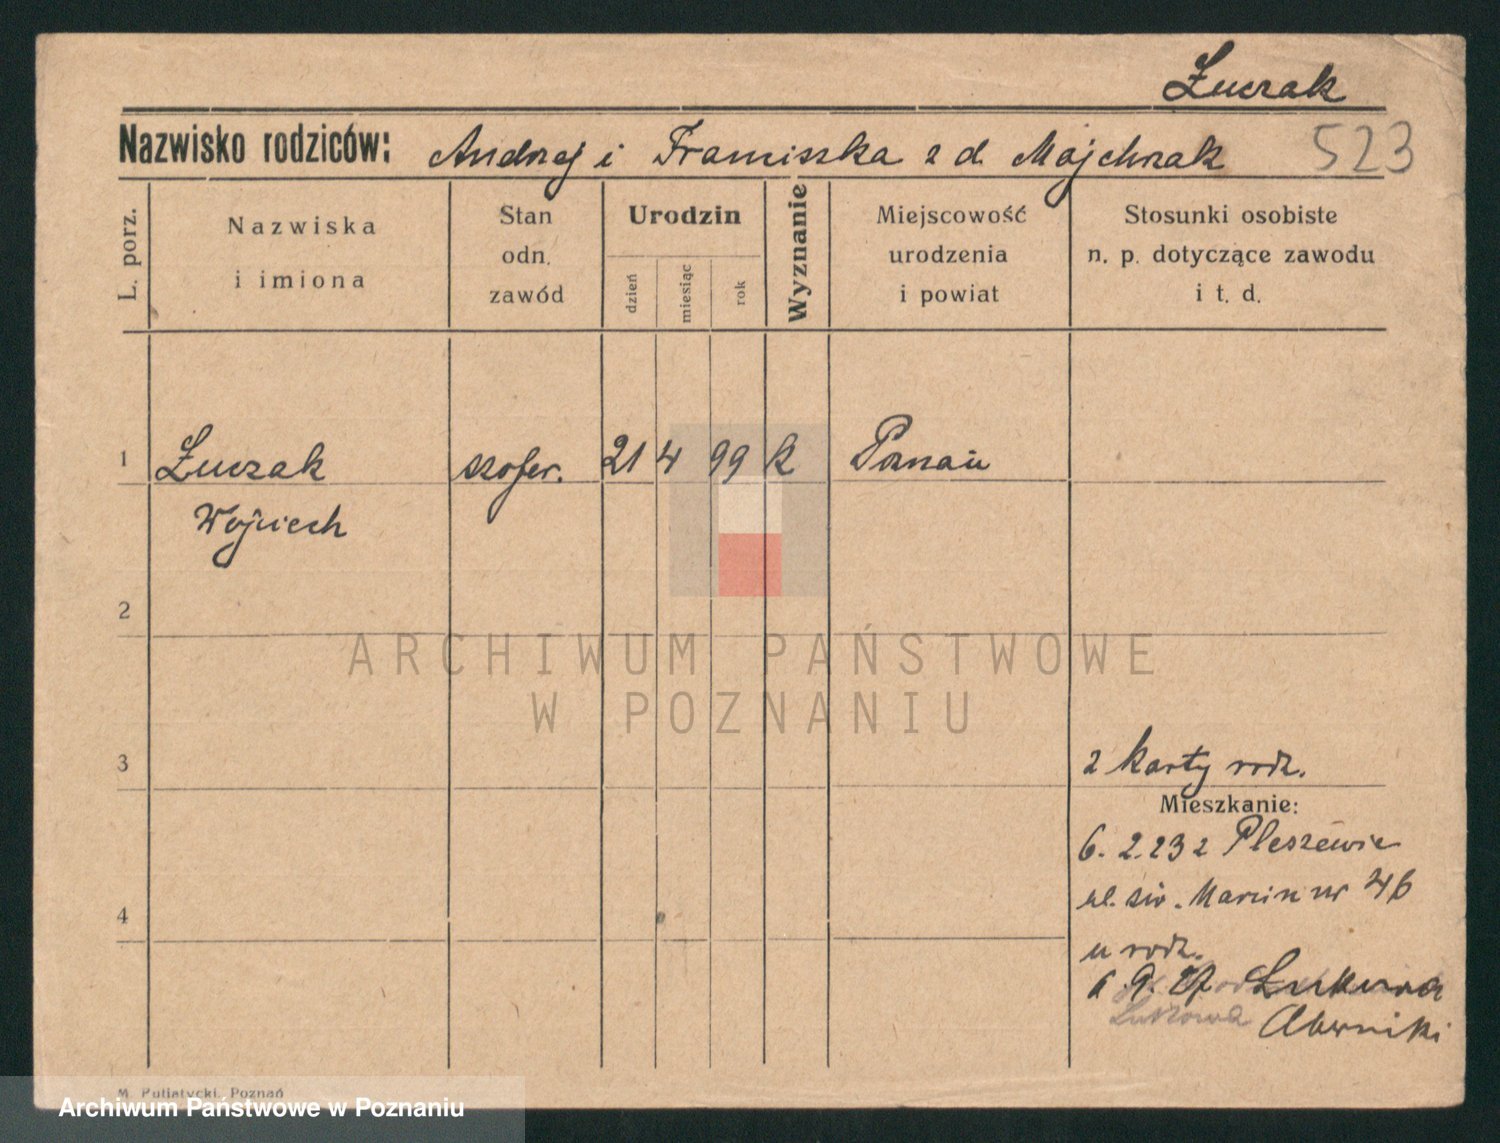 Łuczak
Nazwisko rodziców: Andrzej i Franciszka z d. Majchrzak 523
L. porz.
Nazwiska
i imiona
Stan
odn.
zawód
Urodzin
dzień
miesiąc
rok
Wyznanie
Miejscowość
urodzenia
i powiat
Stosunki osobiste
n. p. dotyczące zawodu
i t. d.
1 Łuczak szofer. 21 4 99 k Poznań
Wojciech
2
ARCHIWUM PAŃSTWOWE
W POZNANIU
3
2 karty rodz.
Mieszkanie:
6. 2. 23 z Pleszewie
ul. św. Marcin nr 46
4
u rodz.
6. 9. 27
Oborniki
M. Putiatycki, Poznań
Archiwum Państwowe w Poznaniu